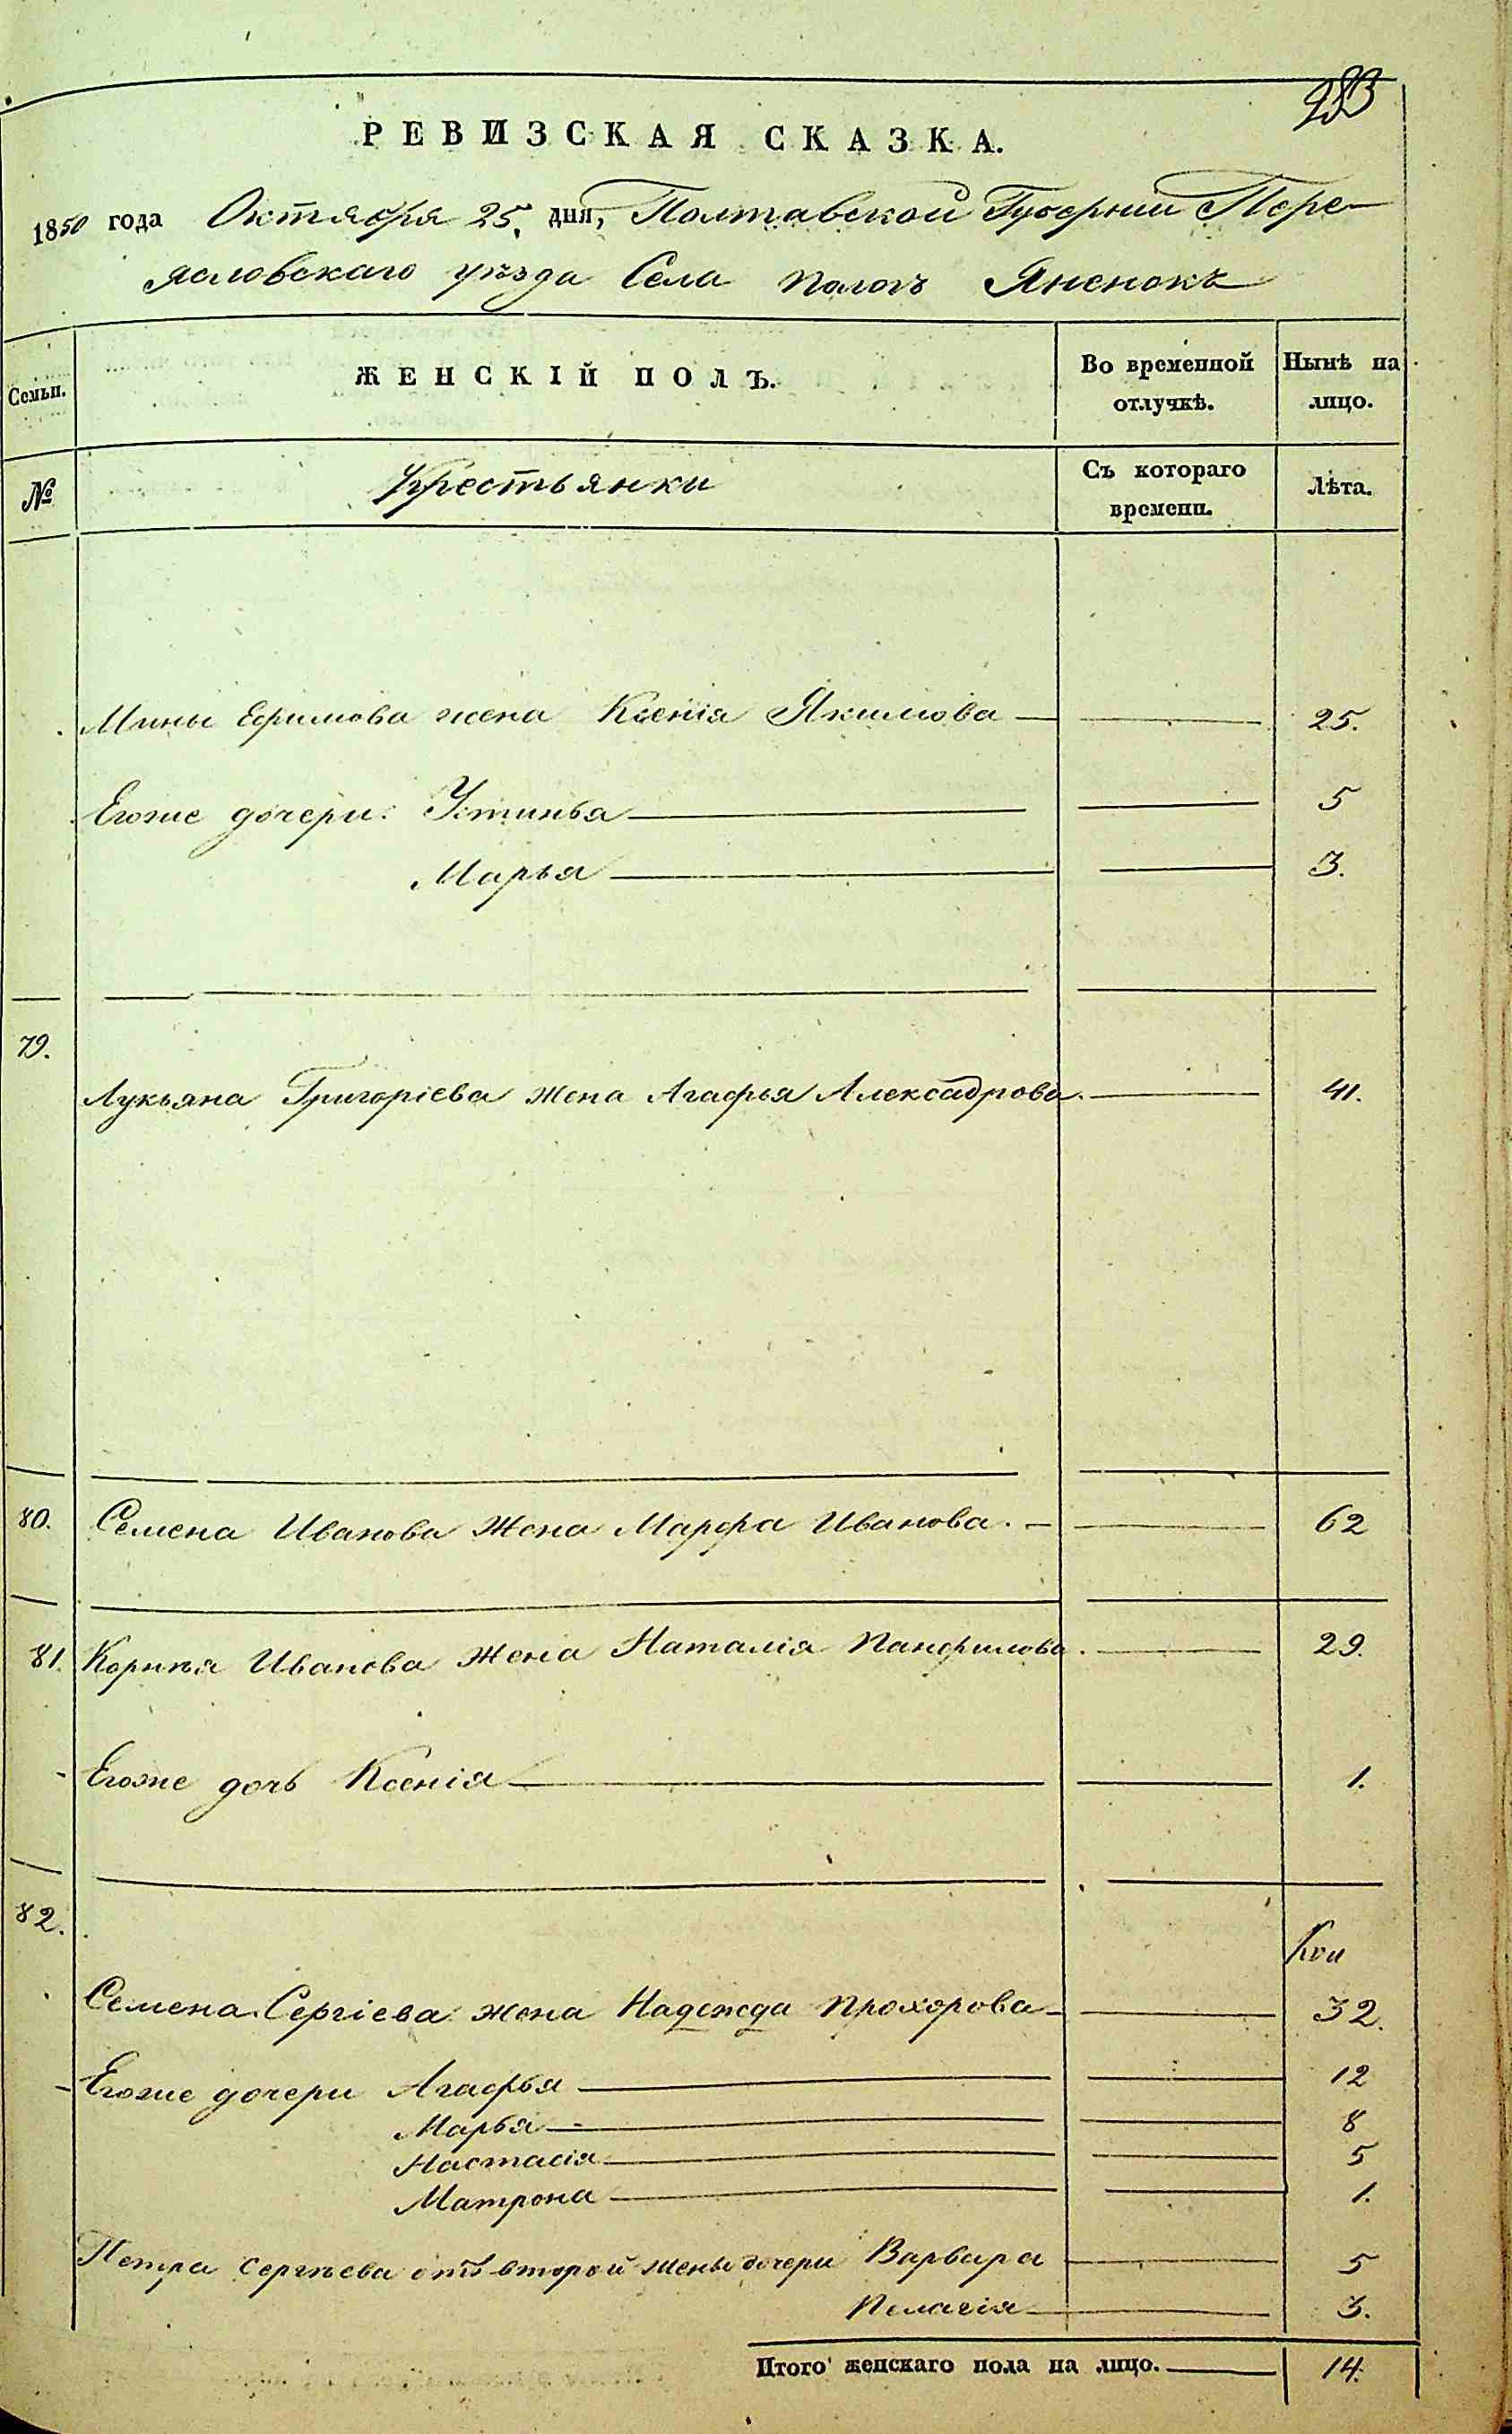 283
РЕВИЗСКАЯ СКАЗКА.
1850 года Октября 25. дня, Полтавской Губернии Пере-
ясловскаго уѣзда Села Пологъ Яненокъ
Семьи.
ЖЕНСКІЙ ПОЛЪ.
Во временной отлучкѣ.
Нынѣ на лицо.
№
Крестьянки
Съ котораго времени.
Лѣта.
Мины Ефимова жена Ксенія Якимова — 25.
Егоже дочери: Устинья — 5
Марья — 3.
79.
Лукьяна Григоріева жена Агафья Алексадрова. — 41.
80. Семена Иванова жена Марфа Иванова. — 62
81. Корнѣя Иванова жена Наталія Панфилова. — 29.
Егоже дочь Ксенія — 1.
82.
Семена Сергіева жена Надежда Прохорова — 32.
Егоже дочери Агафья — 12
Марья — 8
Настасія — 5
Матрона — 1.
Петра Сергѣева отъ второй жены дочери Варвара — 5
Пелагія — 3.
Итого женскаго пола на лицо. — 14.